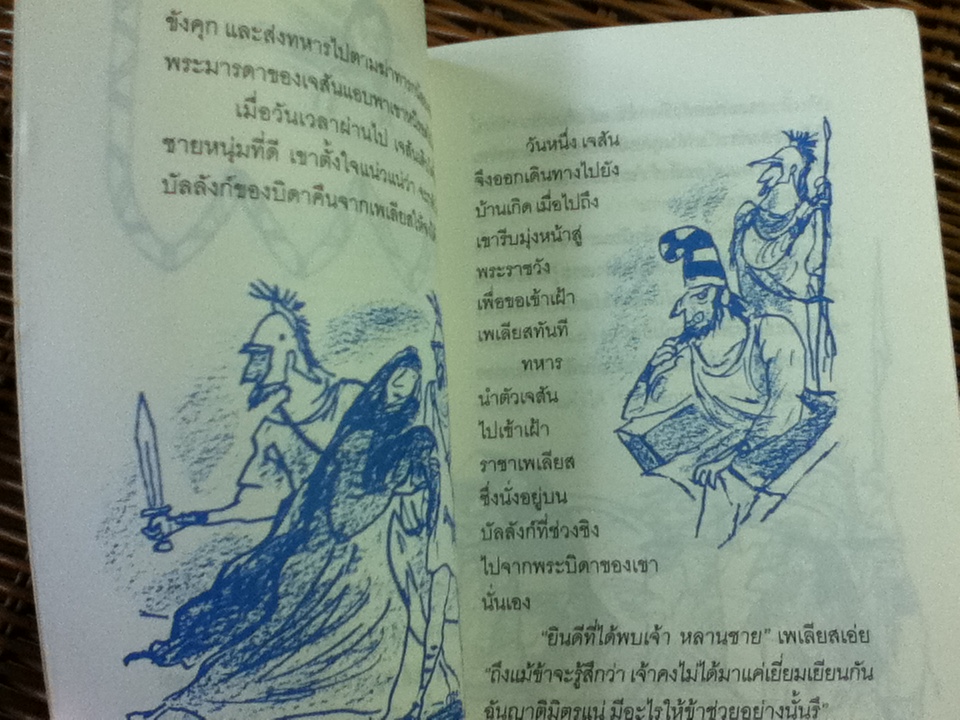 ขังคุก และส่งทหารไปตามฆ่าทารก
พระมารดาของเจสันแอบพาเขาหนี
เมื่อวันเวลาผ่านไป เจสัน
ชายหนุ่มที่ดี เขาตั้งใจแน่วแน่ว่า จะ
บัลลังก์ของบิดาคืนจากเพเลียสให้
วันหนึ่ง เจสัน
จึงออกเดินทางไปยัง
บ้านเกิด เมื่อไปถึง
เขารีบมุ่งหน้าสู่
พระราชวัง
เพื่อขอเข้าเฝ้า
เพเลียสทันที
ทหาร
นำตัวเจสัน
ไปเข้าเฝ้า
ราชาเพเลียส
ซึ่งนั่งอยู่บน
บัลลังก์ที่ช่วงชิง
ไปจากพระบิดาของเขา
นั่นเอง
"ยินดีที่ได้พบเจ้า หลานชาย" เพเลียสเอ่ย
"ถึงแม้ข้าจะรู้สึกว่า เจ้าคงไม่ได้มาแค่เยี่ยมเยียนกัน
ฉันญาติมิตรแน่ มีอะไรให้ข้าช่วยอย่างนั้นรึ"